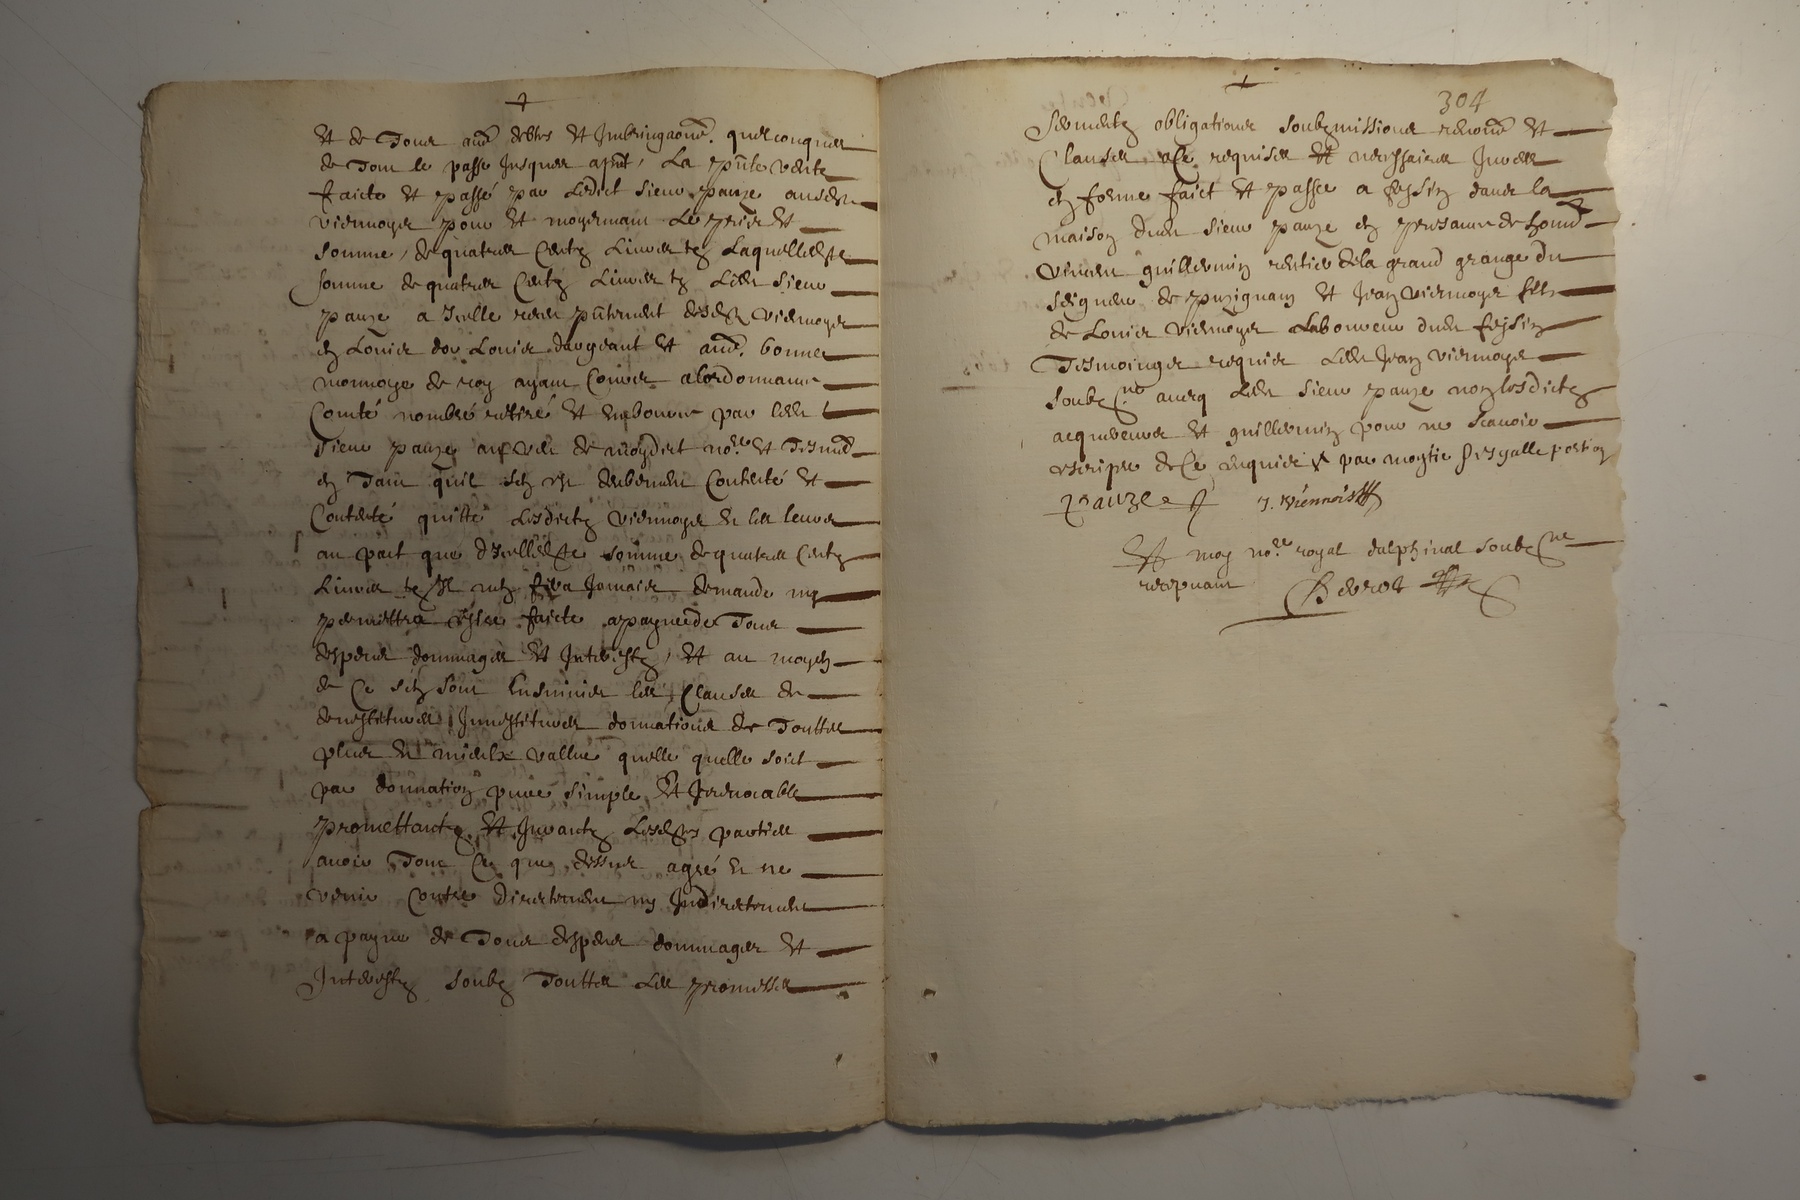 et de tous aut debtes et Imbringaons. quelconques
de tout le passe jusques a pnt, La pnte vente
faicte et passé par Ledict sieur pauze ausd
viermoyes pour et moyennant Le prix et
somme, de quatres Centz Livres tz Laquelle
somme de quatres Centz Livres tz Led sieur
pauze a receu pntement desd viermoyes
en Louis dor Louis dargeant et aut. bonnes
monnoye de roy ayant Cours a lordonnance
Comté nombré retiré et emboursé par led
sieur pauze au veu de moydict no.re et Tesmd
en tant quil sen est deubement Contenté et
Contenté quitté Lesdictz viermoyes et les leurs
au pait que somme de quatres Centz
Livres tz Il nen fera Jamais demande ny
permettra estre faicte a payne de Tous
despens dommages et Interestz, et au moyen
de Ce sen sont Ensuivies les Clauses de
devestitures Investitures donnations de Touttes
plus et mieulx vallue quelle quelle soict
par donnation pure simple et Irrevocable
promettantz et Jurantz Lesd parties
avoir Tout Ce que dessus agréé et ne
venir Contre directement ny Indirectement
a payne de Tous despens dommages et
Interestz soubz Touttes Les promesses
304
sermentz obligations soubzmissions renons et
Clauses a Ce requises et necessaires Juré
en forme faict et passe a feysin dans la
maison dud sieur pauze en presance de hond
vincen guillermin rentier de la grand grange du
seigneur de puzignan et Jean viermoyes filz
de Louis viermoyes Laboureur dud feysin
Tesmoinges requis Led Jean viermoyes
soubz.ne avecq Led sieur pauze non lesdictz
acquereurs et guillermin pour ne scavoir
escripre de Ce enquis et par moytie esgalle portion
pauze J. Viermois
Et moy no.re royal dalphinal soubz.ne
recepvant